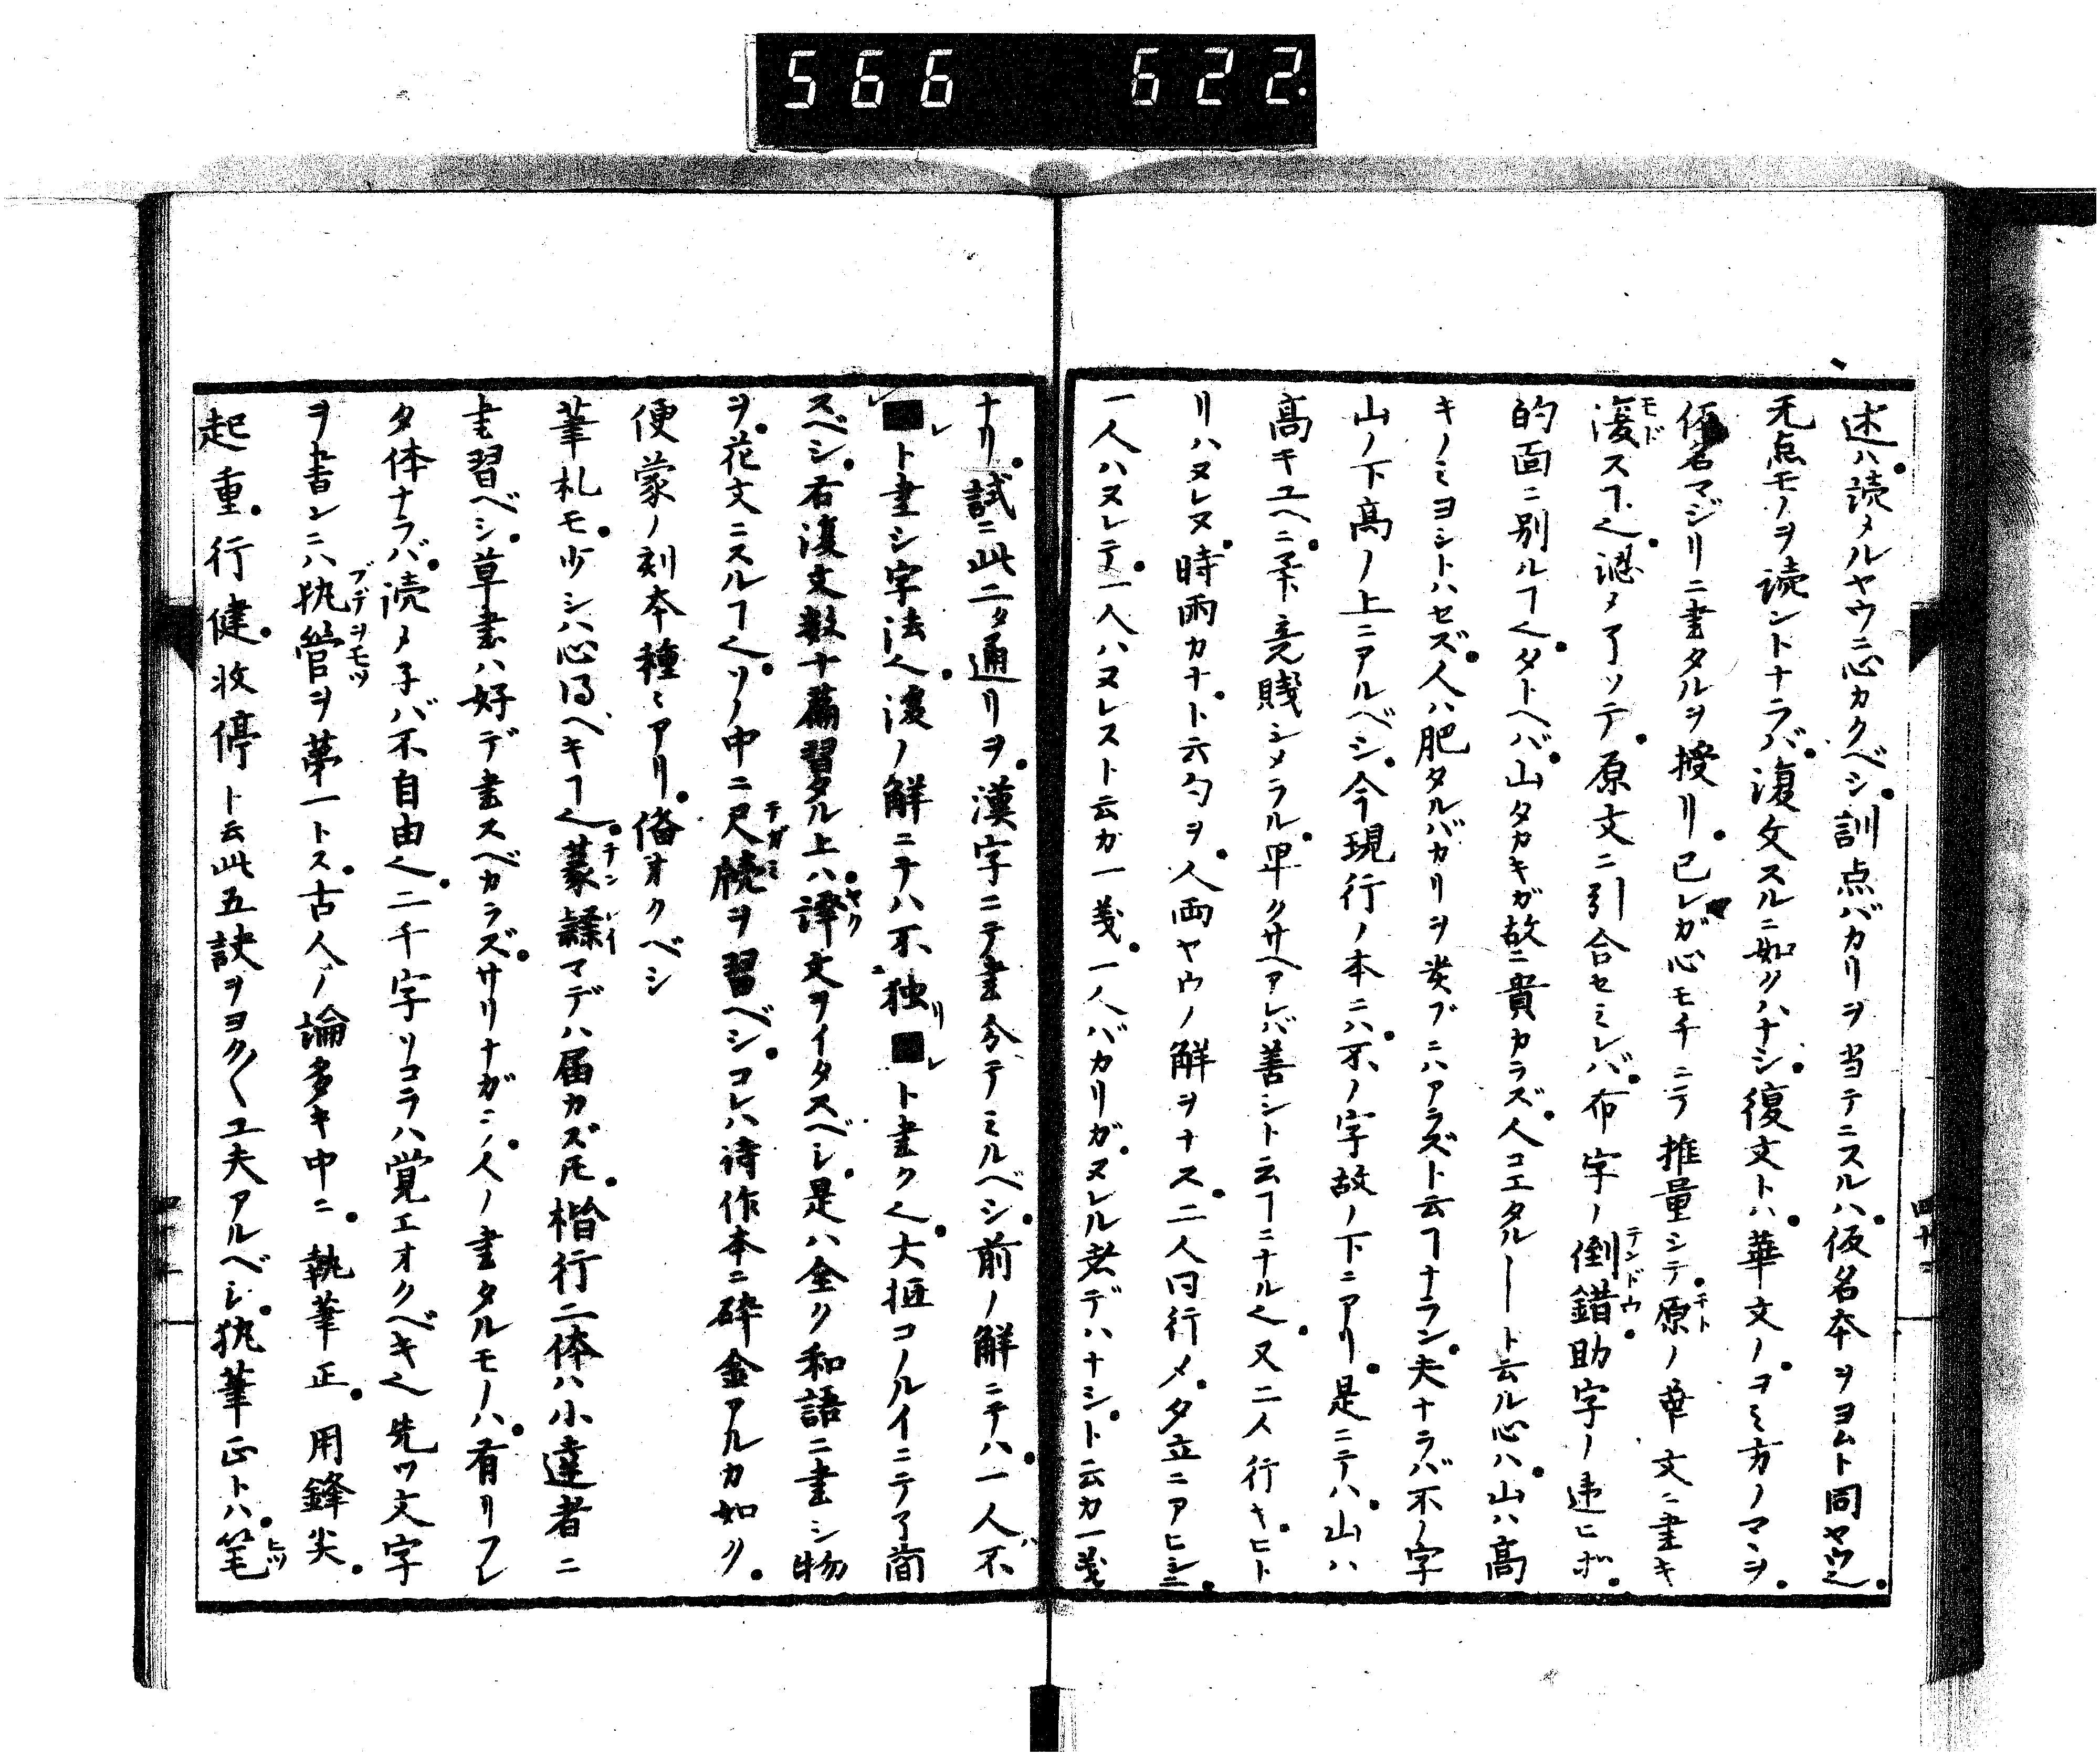 566 622.
述ハ読メルヤウニ心カクベシ訓点バカリヲ当テニスルハ仮名本ヲヨムト同ヤウ也
无点モノヲ読ントナラバ復文スルニ如クハナシ復文トハ華文ノヨミ方ノマヽヲ
仮名マジリニ書タルヲ授リ已レガ心モチニテ推量シテ原ノ華文ニ書キ
復スヿ也認メ了ツテ原文ニ引合セミレバ布字ノ倒錯助字ノ違ヒガ
的面ニ別ルヿ也タトヘバ山タカキガ故ニ貴カラズ人コエタル――ト云ル心ハ山ハ高
キノミヨシトハセズ人ハ肥タルバカリヲ美ブニハアラズト云ヿナラン夫ナラバ不ノ字
山ノ下高ノ上ニアルベシ今現行ノ本ニハ不ノ字故ノ下ニアリ是ニテハ山ハ
高キユヘニ却下賤シメラル卑クサヘアレバ善シト云ヿニナル也又二人行キヒト
リハヌレヌ時雨カナト云句ヲ人両ヤウノ解ヲナス二人同行メタ立ニアヒシニ
一人ハヌレテ一人ハヌレスト云カ一義一人バカリガヌレル者デハナシト云カ一義
ナリ試ニ此二タ通リヲ漢字ニテ書分テミルベシ前ノ解ニテハ一人不
■ト書シ字法也後ノ解ニテハ不独リ■ト書ク也大抵コノルイニテ了簡
スベシ右復文数十篇習タル上ハ訳文ヲイタスベシ是ハ全ク和語ニ書シ物
ヲ花文ニスルヿ也ソノ中ニ尺牘ヲ習ベシコレハ詩作本ニ砕金アルカ如ク
便蒙ノ刻本種ミアリ備オクベシ
筆札モ少シハ心得ベキヿ也篆隷マデハ届カズ𪜈楷行二体ハ小達者ニ
書習ベシ草書ハ好デ書スベカラズサリナガラ人ノ書タルモノハ有リフレ
タ体ナラバ読メ子バ不自由也二千字ソコラハ覚エオクベキ也先ツ文字
ヲ書ンニハ執管ヲ第一トス古人ノ論多キ中ニ執筆正用鋒尖
起重行健收停ト云此五訣ヲヨク〱工夫アルベシ執筆正トハ笔